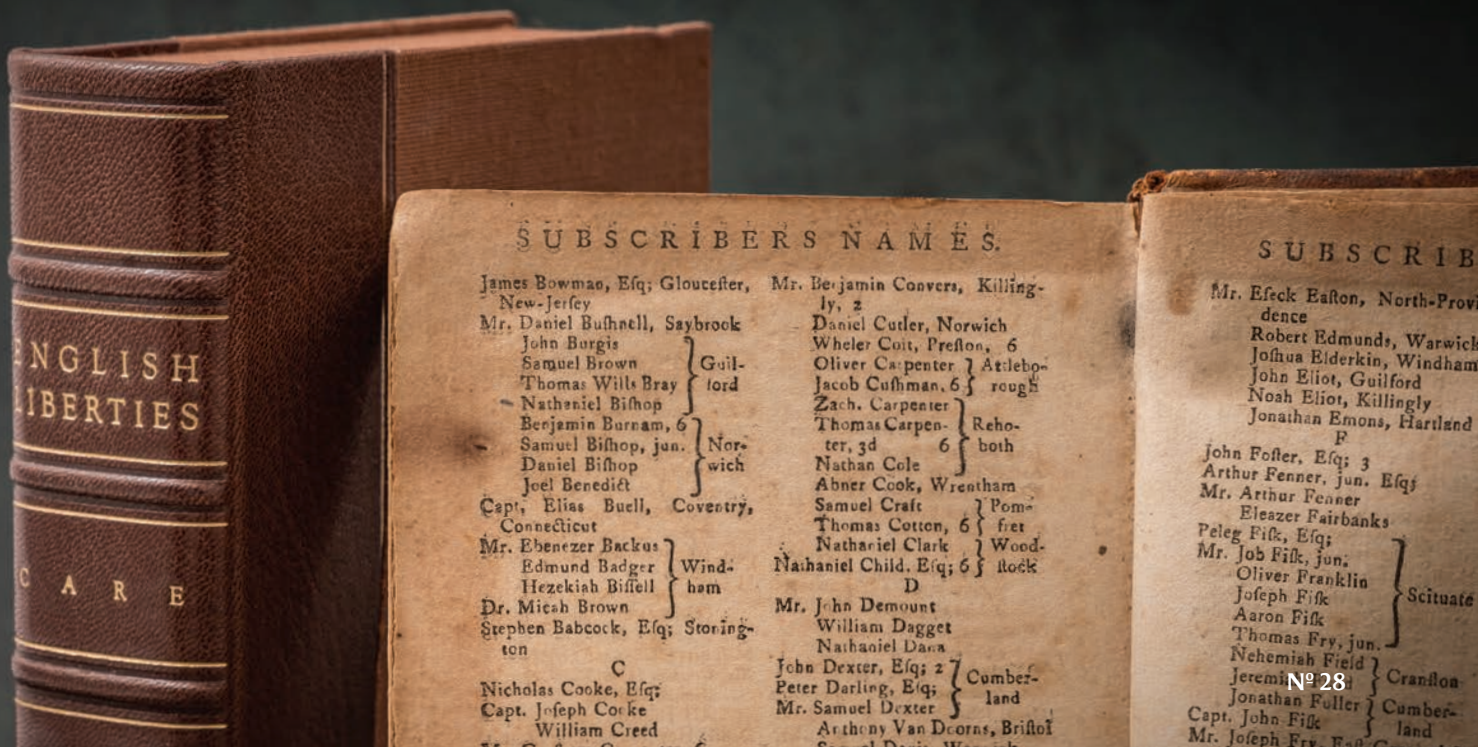 ENGLISH
LIBERTIES
CARE
SUBSCRIBERS NAMES.
James Bowman, Eſq; Glouceſter,
New-Jerſey
Mr. Daniel Buſhnell, Saybrook
John Burgis
Samuel Brown
Thomas Wills Bray
Nathaniel Biſhop
Guil-
ford
Benjamin Burnam, 6
Samuel Biſhop, jun.
Daniel Biſhop
Joel Benedict
Nor-
wich
Capt. Elias Buell, Coventry,
Connecticut
Mr. Ebenezer Backus
Edmund Badger
Hezekiah Biſſell
Dr. Micah Brown
Wind-
ham
Stephen Babcock, Eſq; Stoning-
ton
C
Nicholas Cooke, Eſq;
Capt. Joſeph Cooke
William Creed
Mr. Benjamin Convers, Killing-
ly, 2
Daniel Cutler, Norwich
Wheler Coit, Preſton, 6
Oliver Carpenter
Jacob Cuſhman, 6
Attlebo-
rough
Zach. Carpenter
Thomas Carpen-
ter, 3d 6
Nathan Cole
Reho-
both
Abner Cook, Wrentham
Samuel Craft
Thomas Cotton, 6
Pom-
fret
Nathaniel Clark
Nathaniel Child, Eſq; 6
Wood-
ſtock
D
Mr. John Demount
William Dagget
Nathaniel Dana
John Dexter, Eſq; 2
Peter Darling, Eſq;
Mr. Samuel Dexter
Cumber-
land
Anthony Van Doorns, Briſtol
SUBSCRIB
Mr. Eſeck Eaſton, North-Provi
dence
Robert Edmunds, Warwick
Joſhua Elderkin, Windham
John Eliot, Guilford
Noah Eliot, Killingly
Jonathan Emons, Hartland
F
John Foſter, Eſq; 3
Arthur Fenner, jun. Eſq;
Mr. Arthur Fenner
Eleazer Fairbanks
Peleg Fiſk, Eſq;
Mr. Job Fiſk, jun.
Oliver Franklin
Joſeph Fiſk
Aaron Fiſk
Thomas Fry, jun.
Scituate
Nehemiah Field
Cranſton
Jonathan Fuller
Capt. John Fiſk
Cumber-
land
Mr. Joſeph Fry,
Nº 28